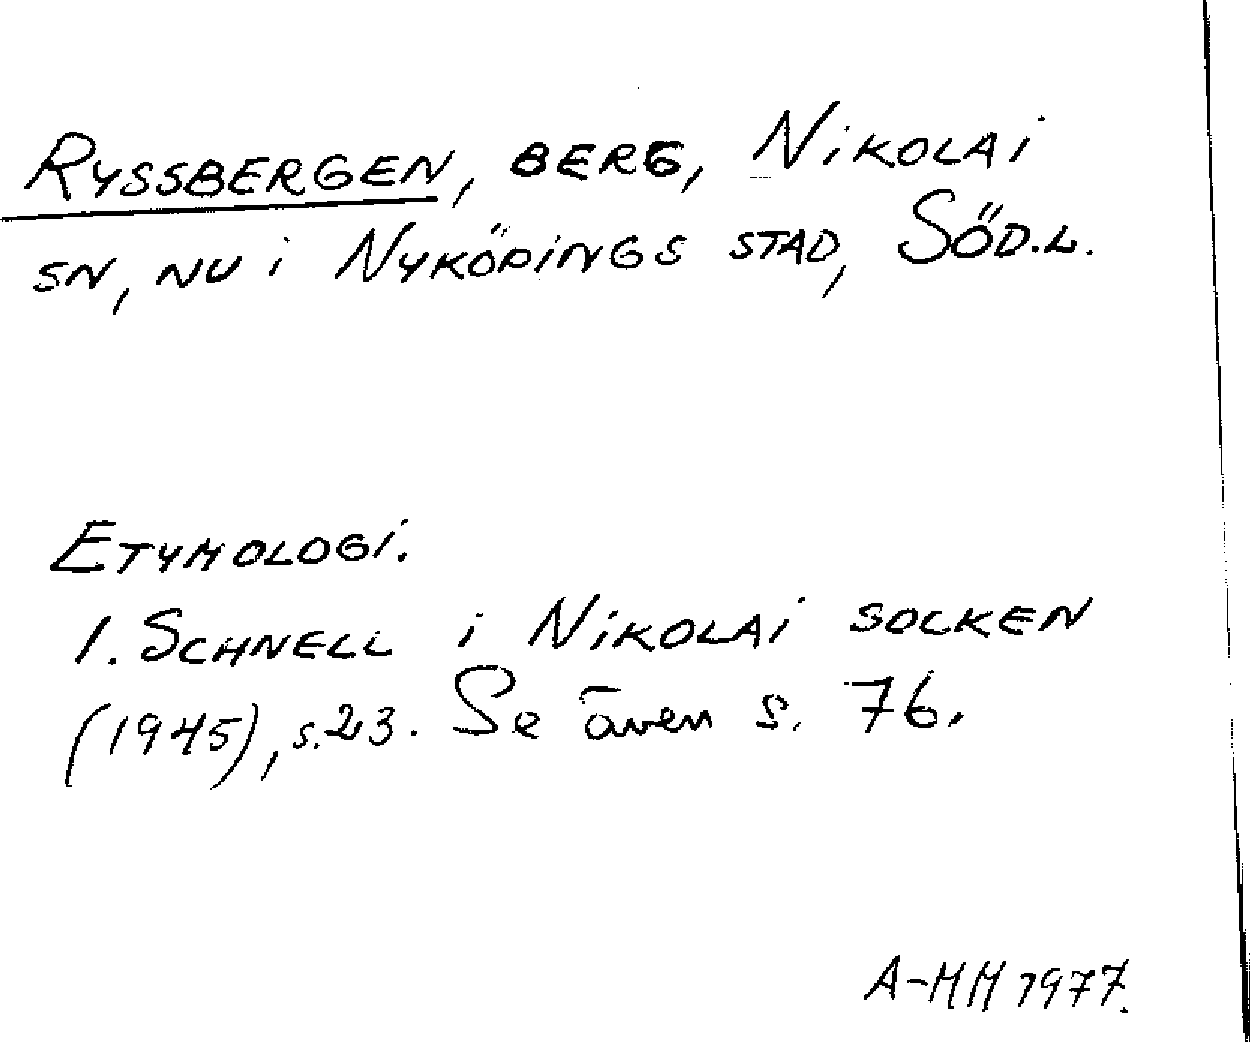 RYSSBERGEN, BERG, NIKOLAI
SN, NU i NYKÖPINGS STAD, SÖD.L.
ETYMOLOGI.
1. SCHNELL i NIKOLAI SOCKEN
(1945), s.23. Se även s. 76.
A-MM 1977.